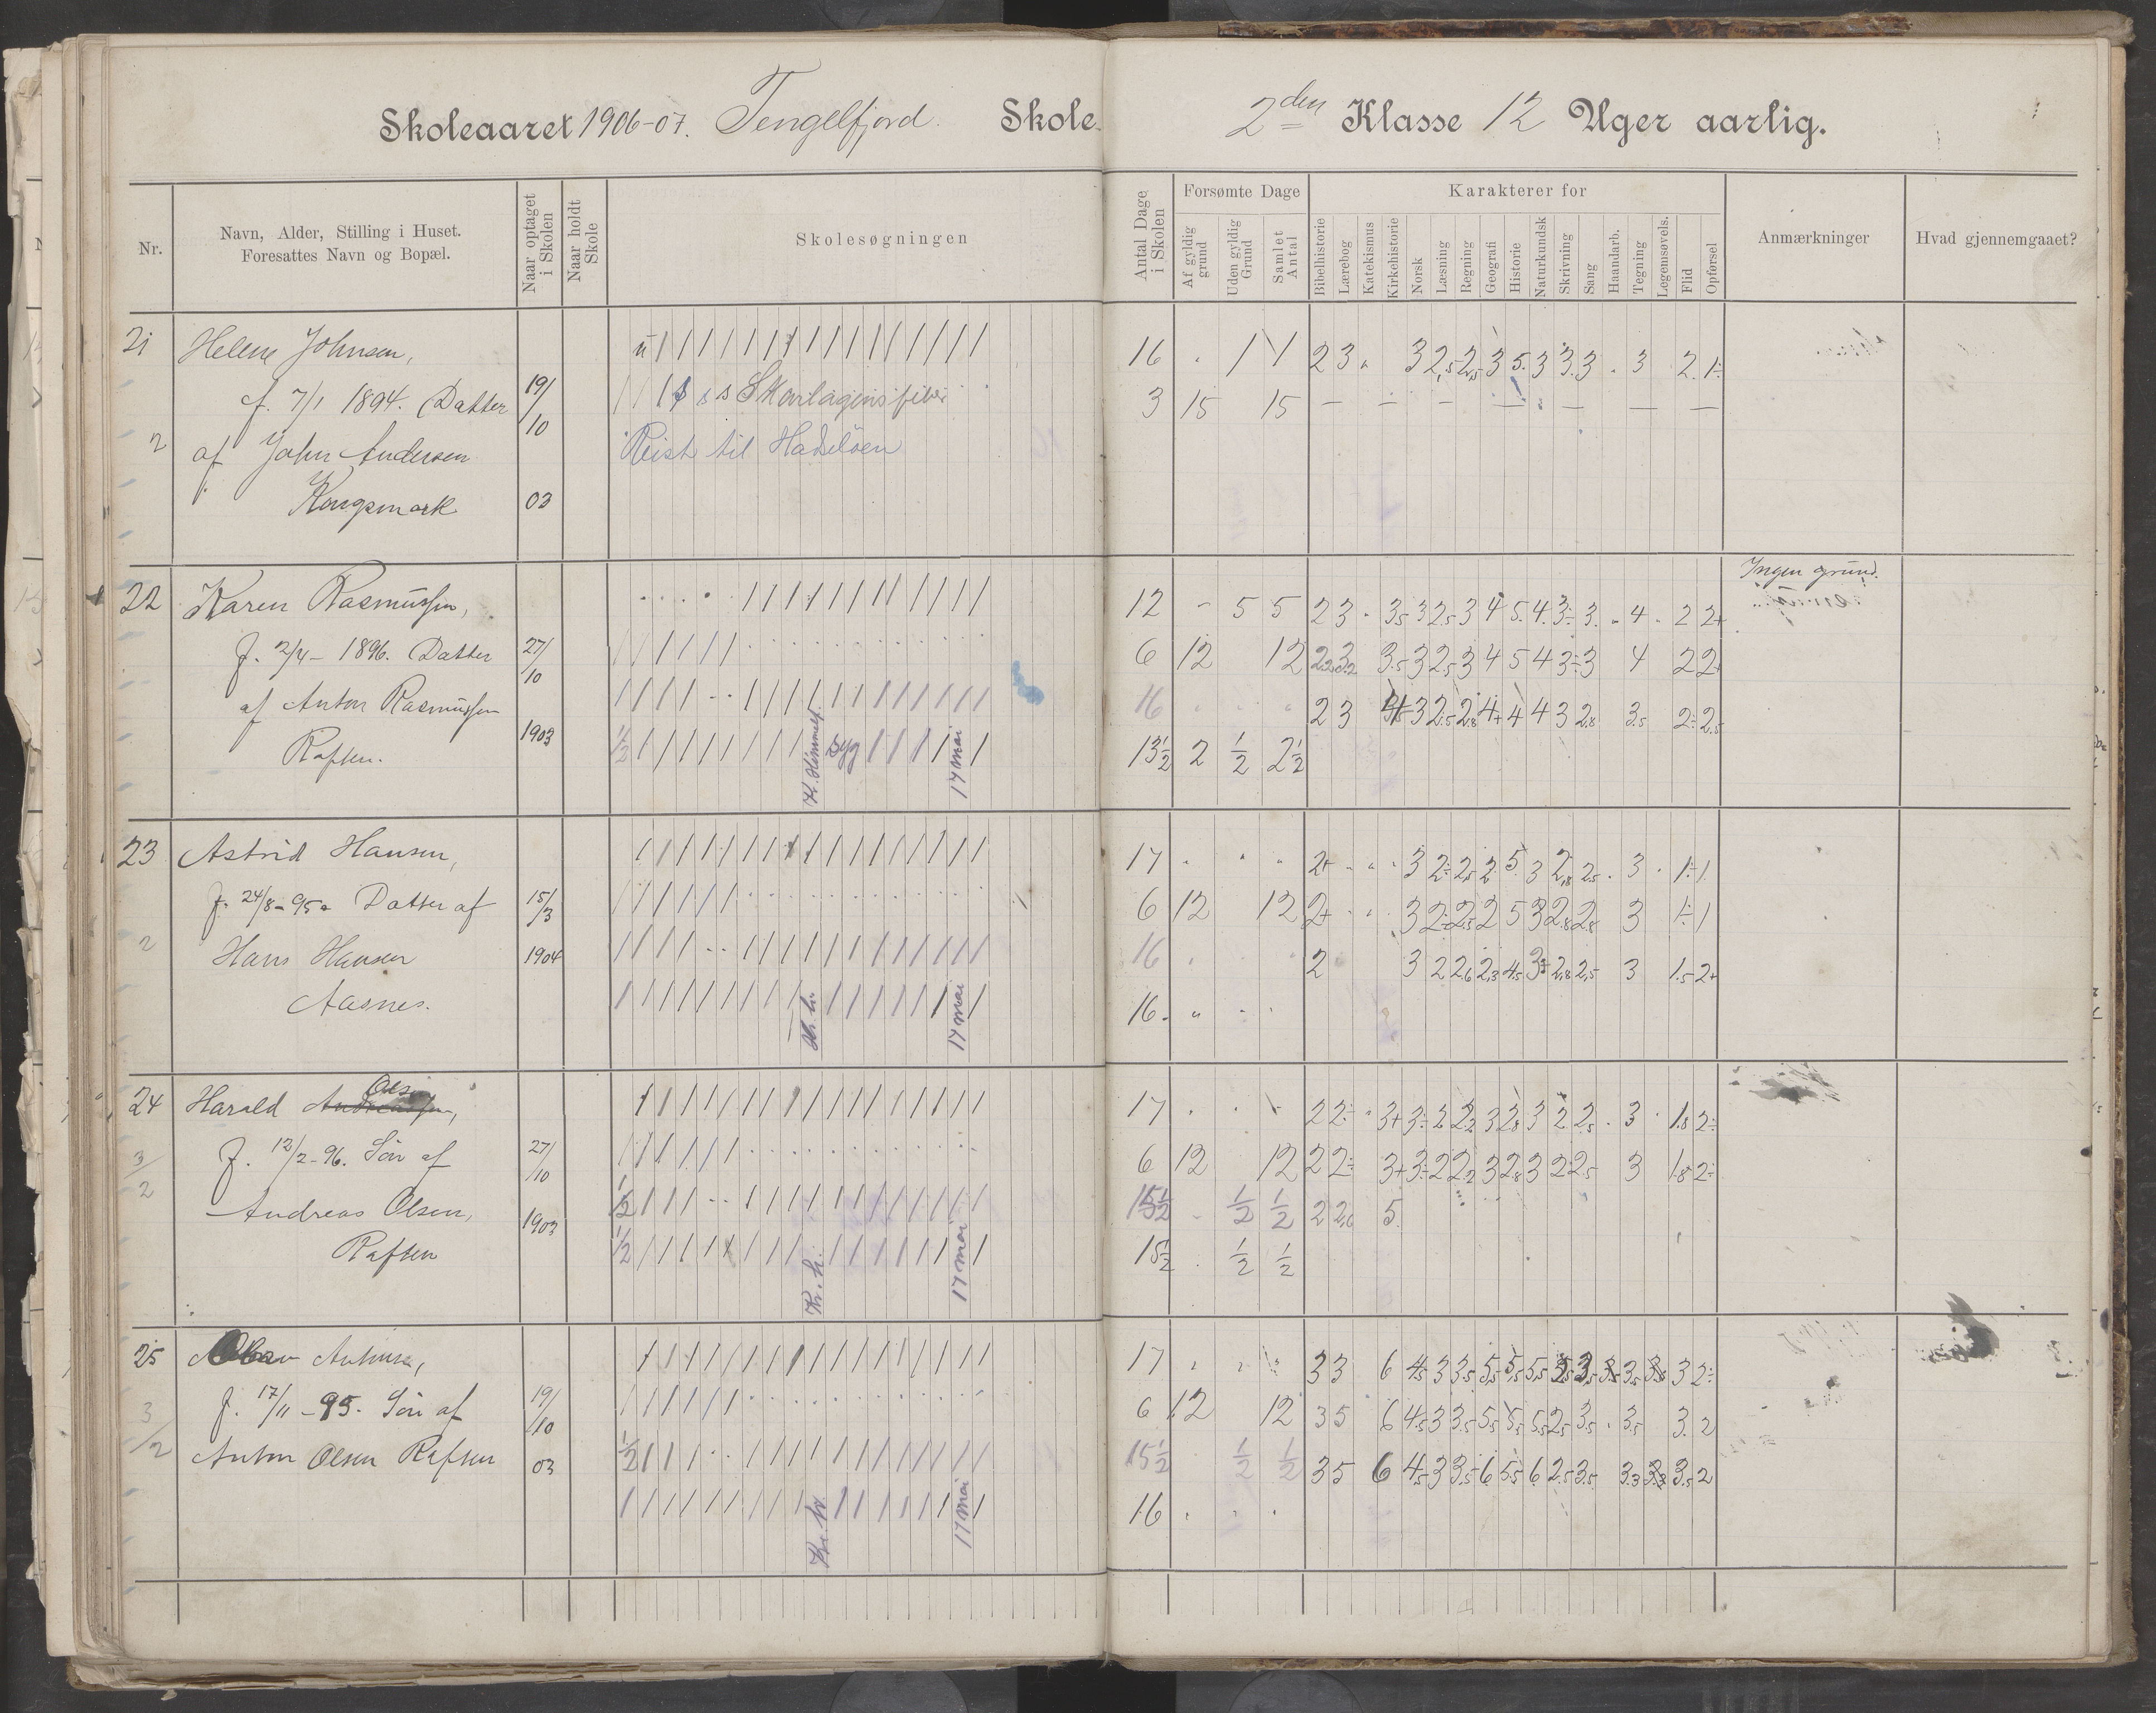 Skoleaaret 1906-07. Tengelfjord Skole.
2den Klasse 12 Uger aarlig.
Nr.
Navn, Alder, Stilling i Huset.
Foresattes Navn og Bopæl.
Naar optaget
i Skolen
Naar holdt
Skole
Skolesøgningen
Antal Dage
i Skolen
Forsømte Dage
Af gyldig
grund
Uden gyldig
Grund
Samlet
Antal
Karakterer for
Bibelhistorie
Lærebog
Katekismus
Kirkehistorie
Norsk
Læsning
Regning
Geografi
Historie
Naturkundsk
Skrivning
Sang
Haandarb.
Tegning
Legemsøvels.
Flid
Opførsel
Anmærkninger
Hvad gjennemgaaet?
21 Helene Johnsen,
f. 7/1 1894. Datter 19/10
2 af John Andersen
Kongsmark 03
16 1 1 2 3 3 2,5 2,5 3 5. 3 3. 3 3 2. 1÷
s s s Skarlagensfeber
3 15 15 — — — — — — —
Reist til Hadseløen
22 Karen Rasmussen,
f. 2/4 - 1896. Datter 27/10
af Anton Rasmussen
Raften. 1903
12 - 5 5 2 3 3,5 3 2,5 3 4 5. 4. 3÷ 3. 4 2 2+
Ingen grund.
6 12 12 3,5 3 2,5 3 4 5 4 3÷ 3 4 2 2+
16 2 3 3 2,5 2,8 4+ 4 4 3 2,8 3,5 2÷ 2,5
½ K. Himmelf. Syg 17 mai
13½ 2 ½ 2½
23 Astrid Hansen,
f. 24/8 - 95. Datter af 15/3
2 Hans Hansen 1904
Aasnes.
17 2+ 3 2÷ 2,5 2 5 3 2,8 2,5 3 1÷ 1
6 12 12 2+ 3 2÷ 2,5 2 5 3 2,8 2,8 3 1÷ 1
16 2 3 2 2,6 2,3 4,5 3+ 2,8 2,5 3 1,5 2+
Kr. h. 17 mai
16
24 Harald Olsen,
f. 12/2 - 96. Søn af 27/10
3/2
Andreas Olsen, 1903
Raften
17 2 2÷ 3+ 3÷ 2 2,2 3 2,8 3 2 2,5 3 1,8 2÷
6 12 12 2 2÷ 3+ 3÷ 2 2,2 3 2,8 3 2 2,5 3 1,8 2÷
½ 15½ ½ ½ 2 2,6 5
½ Kr. h. 17 mai
15½ ½ ½
25 Antonsen,
f. 17/11 - 95. Søn af 19/10
3/2
Anton Olsen Raften 03
17 3 3 6 4,5 3 3,5 5,5 5,5 5,5 3,5 3 2÷
6 12 12 3 5 6 4,5 3 3,5 5,5 5,5 5,5 2,5 3,5 3,5 3. 2
½ 15½ ½ ½ 3 5 6 4,5 3 3,5 6 5,5 6 2,5 3,5 3,3 3,5 2
Kr. hr. 17 mai
16